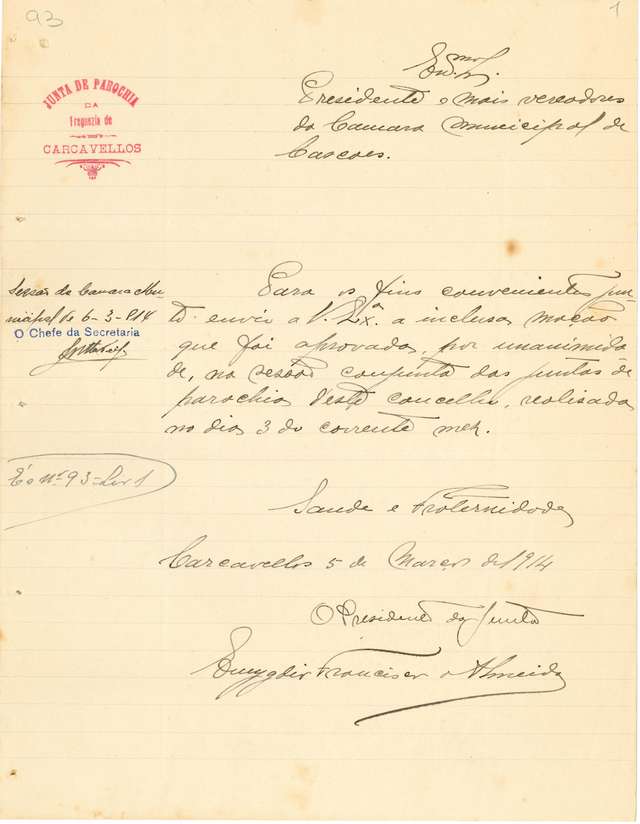 93
1
JUNTA DE PAROCHIA
DA
Freguezia de
CARCAVELLOS
Exmos Snrs.
Presidente e mais vereadores
da Camara Municipal de
Cascaes.
Sessão da Camara Mu-
nicipal de 6-3-914
O Chefe da Secretaria
Para os fins convenientes jun-
to envio a V. Exª a inclusa moção
que foi aprovada, por unanimida
de, na sessão conjunta das juntas de
parochia d'este concelho, realisada
no dia 3 do corrente mez.
É o nº 93-Liv 1
Saude e Fraternidade
Carcavellos 5 de Março de 1914
O Presidente da Junta
Emygdio Francisco d'Almeida